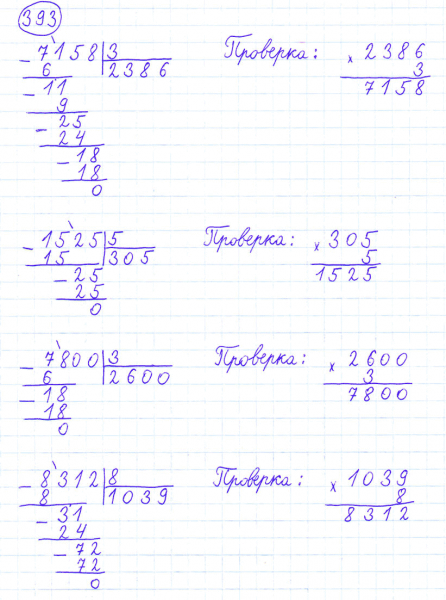 393
- 7158 | 3 Проверка: x 2386
6 | 2386 3
- 11 7158
9
- 25
24
- 18
18
0
- 1525 | 5 Проверка: x 305
15 | 305 5
- 25 1525
25
0
- 7800 | 3 Проверка: x 2600
6 | 2600 3
- 18 7800
18
0
- 8312 | 8 Проверка: x 1039
8 | 1039 8
- 31 8312
24
- 72
72
0